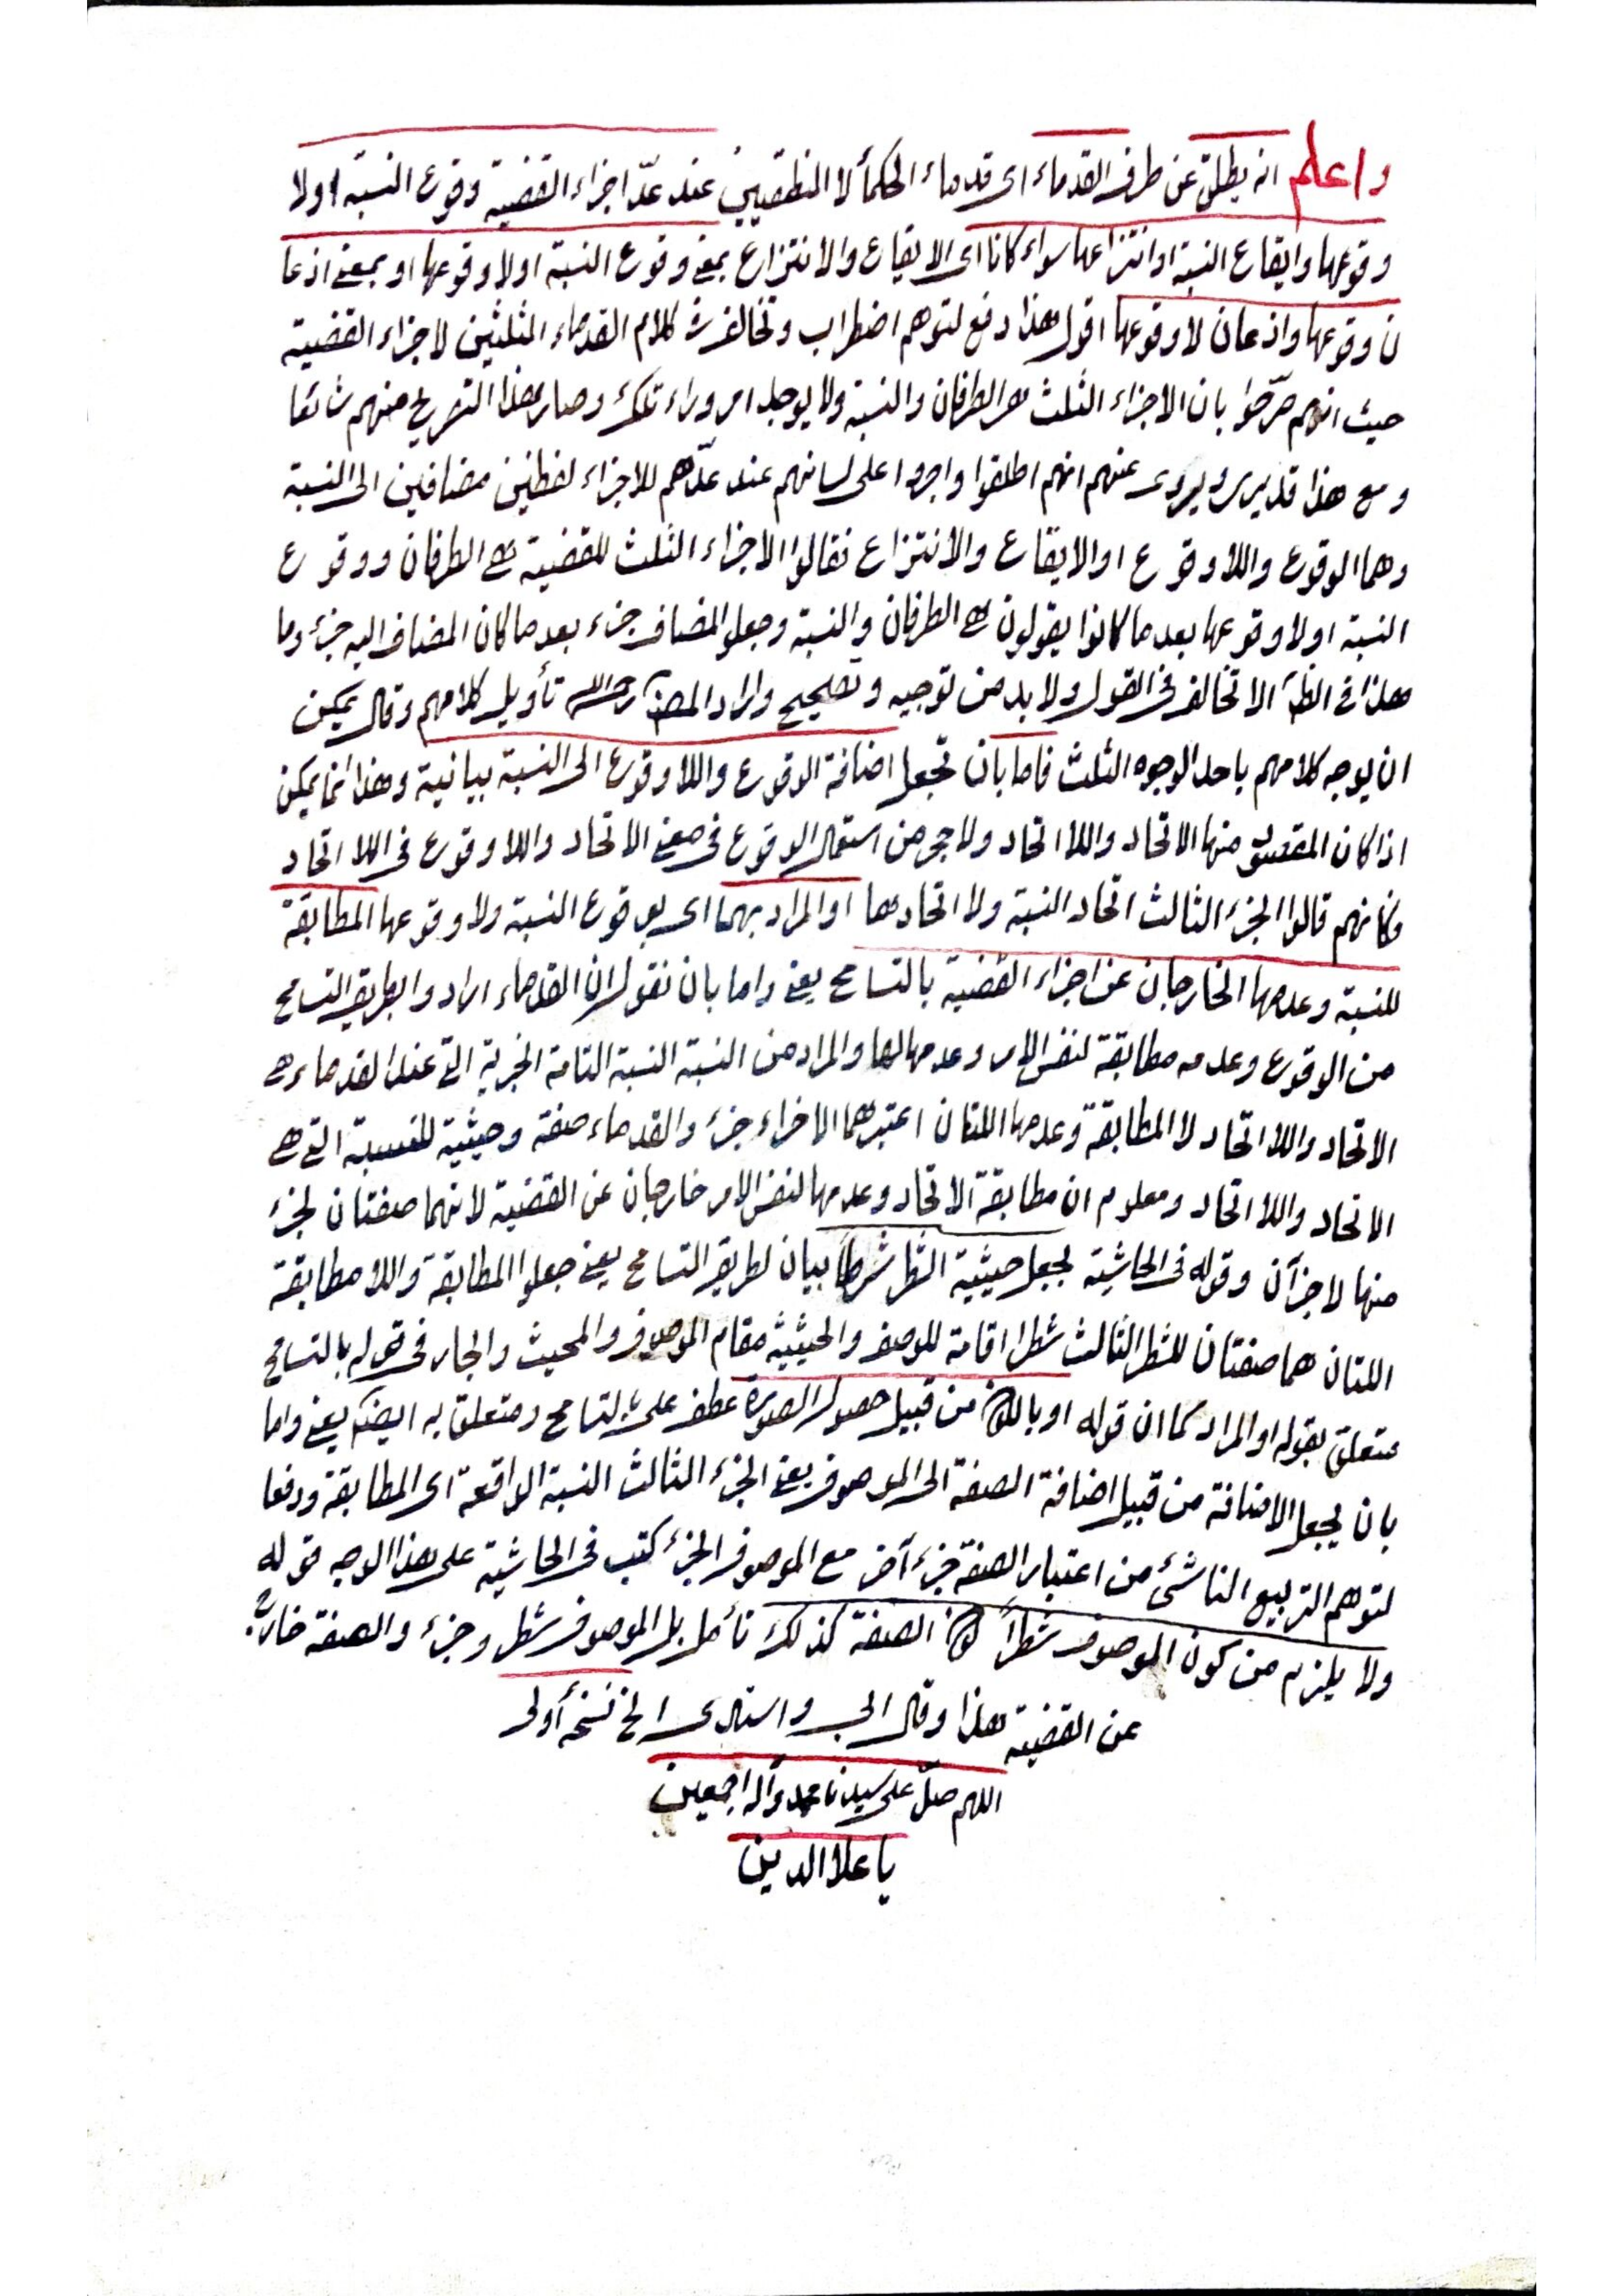 واعلم انه يطلق عن طرف القدماء اى قدماء الحكمأ لا المنطقيين عند عدّ اجزاء القضية وقوع النسبة اولا
وقوعها وايقاع النسبة او انتزاعها سواء كانا اى الايقاع والانتزاع بمعنى وقوع النسبة اولا وقوعها او بمعنى اذعا
ن وقوعها واذعان لا وقوعها اقول هذا دفع لتوهم اضطراب وتخالف فى كلام القدماء المثلثين لاجزاء القضية
حيث انهم صرّحوا بان الاجزاء الثلث هى الطرفان والنسبة ولا يوجد امر وراء تلك وصار هذا التصريح منهم شائعا
ومع هذا قد يرى ويروى عنهم انهم اطلقوا واجروا على لسانهم عند عدّهم للاجزاء لفظين مضافين الى النسبة
وهما الوقوع واللا وقوع او الايقاع والانتزاع فقالوا الاجزاء الثلث للقضية هى الطرفان ووقوع
النسبة اولا وقوعها بعدما كانوا يقولون هى الطرفان والنسبة وجعلوا المضاف جزء بعدما كان المضاف اليه جزء وما
هذا فى الظ الا تخالف فى القول ولا بد من توجيه وتصحيح واراد المصنف رحمه الله تأويل كلامهم وقال يمكن
ان يوجه كلامهم باحد الوجوه الثلث فاما بان تجعل اضافة الوقوع واللا وقوع الى النسبة بيانية وهذا انما يمكن
اذا كان المقصود منها الاتحاد واللا اتحاد ولا حجر من استعمال الوقوع فى معنى الاتحاد واللا وقوع فى اللا اتحاد
فكانهم قالوا الجزء الثالث اتحاد النسبة ولا اتحادها او المراد بهما اى بوقوع النسبة ولا وقوعها المطابقة
للنسبة وعدمها الخارجان عن اجزاء القضية بالتسامح يعنى واما بان نقول ان القدماء ارادوا بطريق التسامح
من الوقوع وعدمه مطابقة لنفس الامر وعدمها لها والمراد من النسبة النسبة التامة الخبرية التى عند القدماء هى
الاتحاد واللا اتحاد لا المطابقة وعدمها اللتان اعتبرهما الاخراء جزء والقدماء صفة وحيثية للنسبة التى هى
الاتحاد واللا اتحاد ومعلوم ان مطابقة الاتحاد وعدمها لنفس الامر خارجان عن القضية لانهما صفتان لجزء
منها لا جزآن وقوله فى الحاشية بجعل حيثية الشطر شرطاً بيان لطريق التسامح يعنى جعلوا المطابقة واللا مطابقة
اللتان هما صفتان للشطر الثالث شطرا اقامة للوصف والحيثية مقام الموصوف والمحيث والجار فى قوله بالتسامح
متعلق بقوله او المراد كما ان قوله او من قبيل حصول الصورة عطف على بالتسامح ومتعلق به ايضا يعنى واما
بان يجعل الاضافة من قبيل اضافة الصفة الى الموصوف يعنى الجزء الثالث النسبة الواقعة اى المطابقة ودفعا
لتوهم التربيع الناشئ من اعتبار الصفة جزء آخر مع الموصوف الجزء كتب فى الحاشية على هذا الوجه قوله
ولا يلزم من كون الموصوف شطراً كون الصفة كذلك تأمل بل الموصوف شطر وجزء والصفة خارجة
عن القضية هذا وقال الى واستدى الخ نسخه أولى
اللهم صلّ على سيدنا محمد وآله اجمعين
يا علا الدين